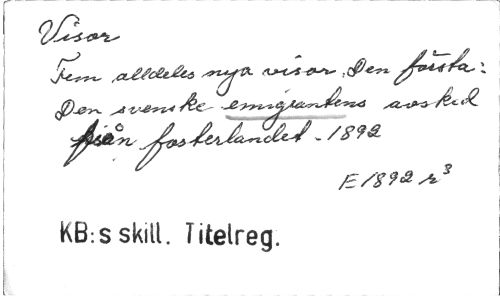 Visor
Fem alldeles nya visor. Den första:
Den svenske emigrantens avsked
från fosterlandet. 1892
E 1892 r³
KB:s skill. Titelreg.